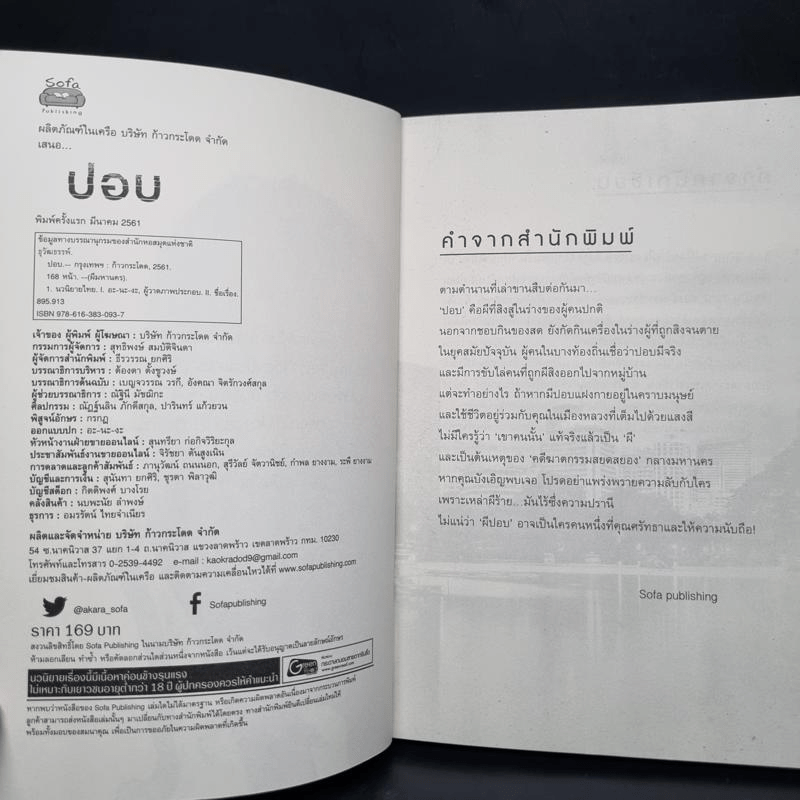 Sofa
Publishing
ผลิตภัณฑ์ในเครือ บริษัท ก้าวกระโดด จำกัด
เสนอ...
ปอบ
พิมพ์ครั้งแรก มีนาคม 2561
ข้อมูลทางบรรณานุกรมของสำนักหอสมุดแห่งชาติ
ธุวัฒธรรพ์.
ปอบ.-- กรุงเทพฯ : ก้าวกระโดด, 2561.
168 หน้า. --(ผีมหานคร).
1. นวนิยายไทย. I. อะ-นะ-งะ, ผู้วาดภาพประกอบ. II. ชื่อเรื่อง.
895.913
ISBN 978-616-383-093-7
เจ้าของ ผู้พิมพ์ ผู้โฆษณา : บริษัท ก้าวกระโดด จำกัด
กรรมการผู้จัดการ : สุทธิพงษ์ สมบัติจินดา
ผู้จัดการสำนักพิมพ์ : ธีรวรรณ ยกศิริ
บรรณาธิการบริหาร : ต้องตา ตั้งชูวงษ์
บรรณาธิการต้นฉบับ : เบญจวรรณ วรกี, อังคณา จิตรักวงศ์สกุล
ผู้ช่วยบรรณาธิการ : ณัฐินี มัชฌิกะ
ศิลปกรรม : ณัฏฐ์นลิน ภักดีสกุล, ปารินทร์ แก้วยวน
พิสูจน์อักษร : กรกฎ
ออกแบบปก : อะ-นะ-งะ
หัวหน้างานฝ่ายขายออนไลน์ : สุนทรียา ก่อกิจวิริยะกุล
ประชาสัมพันธ์งานขายออนไลน์ : จิรัชยา ตันสูงเนิน
การตลาดและลูกค้าสัมพันธ์ : ภานุวัฒน์ ถนนนอก, สุรีวัลย์ จัตวานิชย์, กำพล ยางงาม, ระพี ยางงาม
บัญชีและการเงิน : สุนันทา ยกศิริ, ชุรดา พิลาวุฒิ
บัญชีสต็อก : กิตติพงศ์ บางโรย
คลังสินค้า : นบพะนัย ลำพงษ์
ธุรการ : อมรรัตน์ ไทยจำเนียร
ผลิตและจัดจำหน่าย บริษัท ก้าวกระโดด จำกัด
54 ซ.นาคนิวาส 37 แยก 1-4 ถ.นาคนิวาส แขวงลาดพร้าว เขตลาดพร้าว กทม. 10230
โทรศัพท์และโทรสาร 0-2539-4492 e-mail : kaokradod9@gmail.com
เยี่ยมชมสินค้า-ผลิตภัณฑ์ในเครือ และติดตามความเคลื่อนไหวได้ที่ www.sofapublishing.com
@akara_sofa
Sofapublishing
ราคา 169 บาท
สงวนลิขสิทธิ์โดย Sofa Publishing ในนามบริษัท ก้าวกระโดด จำกัด
ห้ามลอกเลียน ทำซ้ำ หรือคัดลอกส่วนใดส่วนหนึ่งจากหนังสือ เว้นแต่จะได้รับอนุญาตเป็นลายลักษณ์อักษร
นวนิยายเรื่องนี้มีเนื้อหาค่อนข้างรุนแรง
ไม่เหมาะกับเยาวชนอายุต่ำกว่า 18 ปี ผู้ปกครองควรให้คำแนะนำ
Green
หากพบว่าหนังสือของ Sofa Publishing เล่มใดไม่ได้มาตรฐาน หรือเกิดความผิดพลาดอันเนื่องมาจากกระบวนการพิมพ์
ลูกค้าสามารถส่งหนังสือเล่มนั้นๆ มาเปลี่ยนกับทางสำนักพิมพ์ได้โดยตรง ทางสำนักพิมพ์ยินดีเปลี่ยนเล่มใหม่ให้
พร้อมทั้งมอบของสมนาคุณ เพื่อเป็นการขออภัยในความผิดพลาดที่เกิดขึ้น
คำจากสำนักพิมพ์
ตามตำนานที่เล่าขานสืบต่อกันมา...
'ปอบ' คือผีที่สิงสู่ในร่างของผู้คนปกติ
นอกจากชอบกินของสด ยังกัดกินเครื่องในร่างผู้ที่ถูกสิงจนตาย
ในยุคสมัยปัจจุบัน ผู้คนในบางท้องถิ่นเชื่อว่าปอบมีจริง
และมีการขับไล่คนที่ถูกผีสิงออกไปจากหมู่บ้าน
แต่จะทำอย่างไร ถ้าหากมีปอบแฝงกายอยู่ในคราบมนุษย์
และใช้ชีวิตอยู่ร่วมกับคุณในเมืองหลวงที่เต็มไปด้วยแสงสี
ไม่มีใครรู้ว่า 'เขาคนนั้น' แท้จริงแล้วเป็น 'ผี'
และเป็นต้นเหตุของ 'คดีฆาตกรรมสยดสยอง' กลางมหานคร
หากคุณบังเอิญพบเจอ โปรดอย่าแพร่งพรายความลับกับใคร
เพราะเหล่าผีร้าย...มันไร้ซึ่งความปรานี
ไม่แน่ว่า 'ผีปอบ' อาจเป็นใครคนหนึ่งที่คุณศรัทธาและให้ความนับถือ!
Sofa publishing